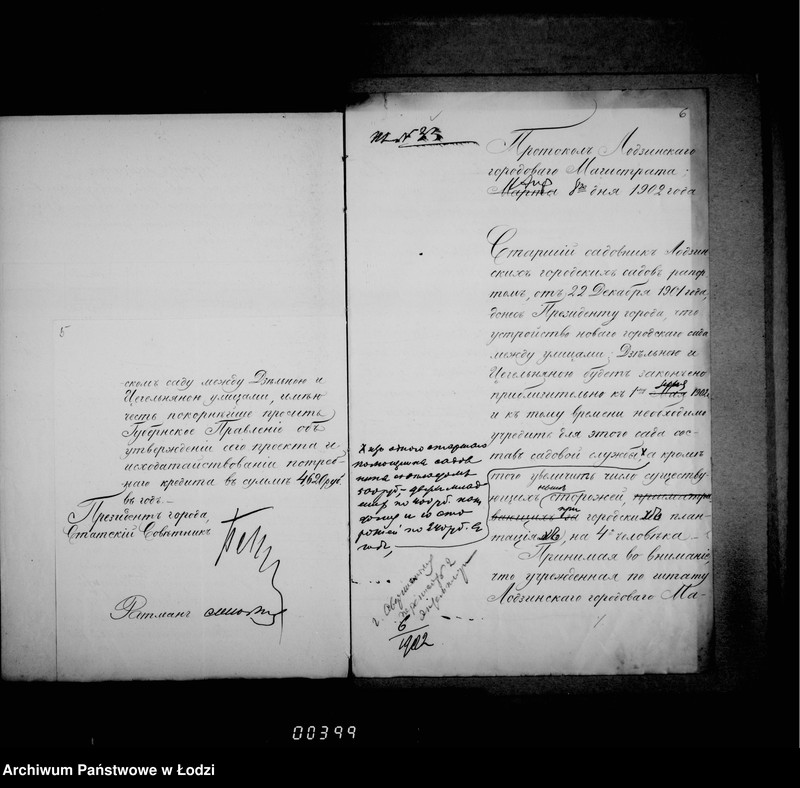 5
скомъ саду между Дзѣльною и
Цегельняной улицами, имѣю
честь покорнѣйше просить
Губернское Правленіе объ
утвержденіи сего проекта и
исходатайствованіи потреб-
наго кредита въ суммѣ 4620 руб.
въ годъ.—
Президентъ города,
Статскій Совѣтникъ
Ратманъ
6
къ № 23
Протоколъ Лодзинскаго
городоваго Магистрата;
Марта 8го дня 1902 года
Старшій садовникъ Лодзин-
скихъ городскихъ садовъ рапор-
томъ, отъ 22 Декабря 1901 года,
донесъ Президенту города, что
устройство новаго городскаго сада
между улицами: Дзѣльною и
Цегельняной будетъ закончено
приблизительно къ 1му Мая 1902 г.
и къ тому времени необходимо
учредить для этого сада сос-
тавъ садовой службы, а кромѣ
того увеличить число существу-
ющихъ сторожей
при городскихъ план-
таціяхъ, на 4 человѣка.—
Принимая во вниманіе,
что учрежденная по штату
Лодзинскаго городоваго Ма-
изъ одного старшаго
помощника садов
ника съ окладомъ
500 руб., двухъ млад
шихъ по 400 руб. каж
дому и 10 сто
рожей по 240 руб. въ
годъ,
6
1902
00399
Archiwum Państwowe w Łodzi